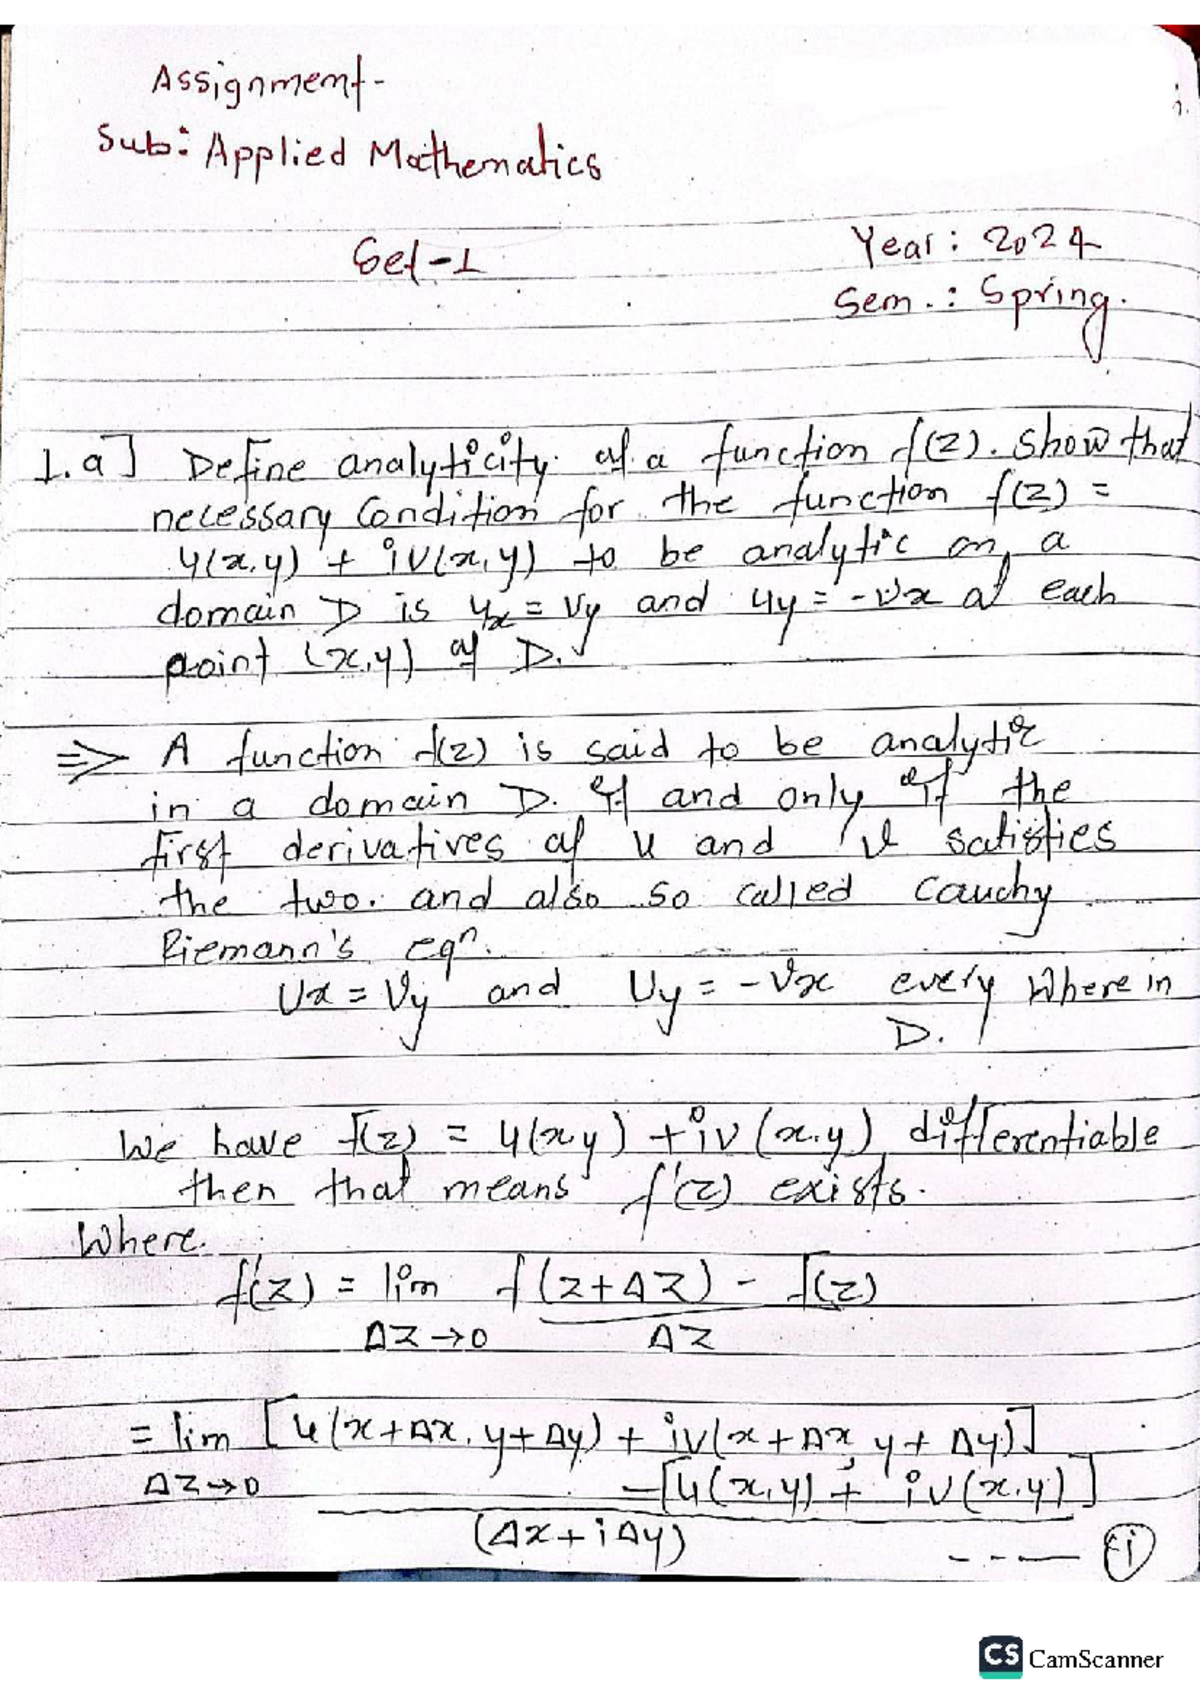 Assignment-
1.
Sub: Applied Mathematics
Set-1
Year: 2024
Sem.: Spring.
1.a] Define analyticity of a function f(z). Show that
necessary Condition for the function f(z) =
u(x,y) + iv(x,y) to be analytic on a
domain D is ux = vy and uy = -vx at each
point (x,y) of D.
⇒ A function f(z) is said to be analytic
in a domain D. if and only if the
first derivatives of u and v satisfies
the two. and also so called Cauchy
Riemann's eqn.
Ux = Vy and Uy = -Vx every Where in
D.
We have f(z) = u(x y) + iv(x.y) differentiable
then that means f'(z) exists.
Where.
f'(z) = lim f(z+Δz) - f(z)
Δz→0 Δz
= lim [u(x+Δx, y+Δy) + iv(x+Δx, y+Δy)]
Δz→0 -[u(x,y) + iv(x,y)]
(Δx+iΔy) ---- (i)
CS CamScanner